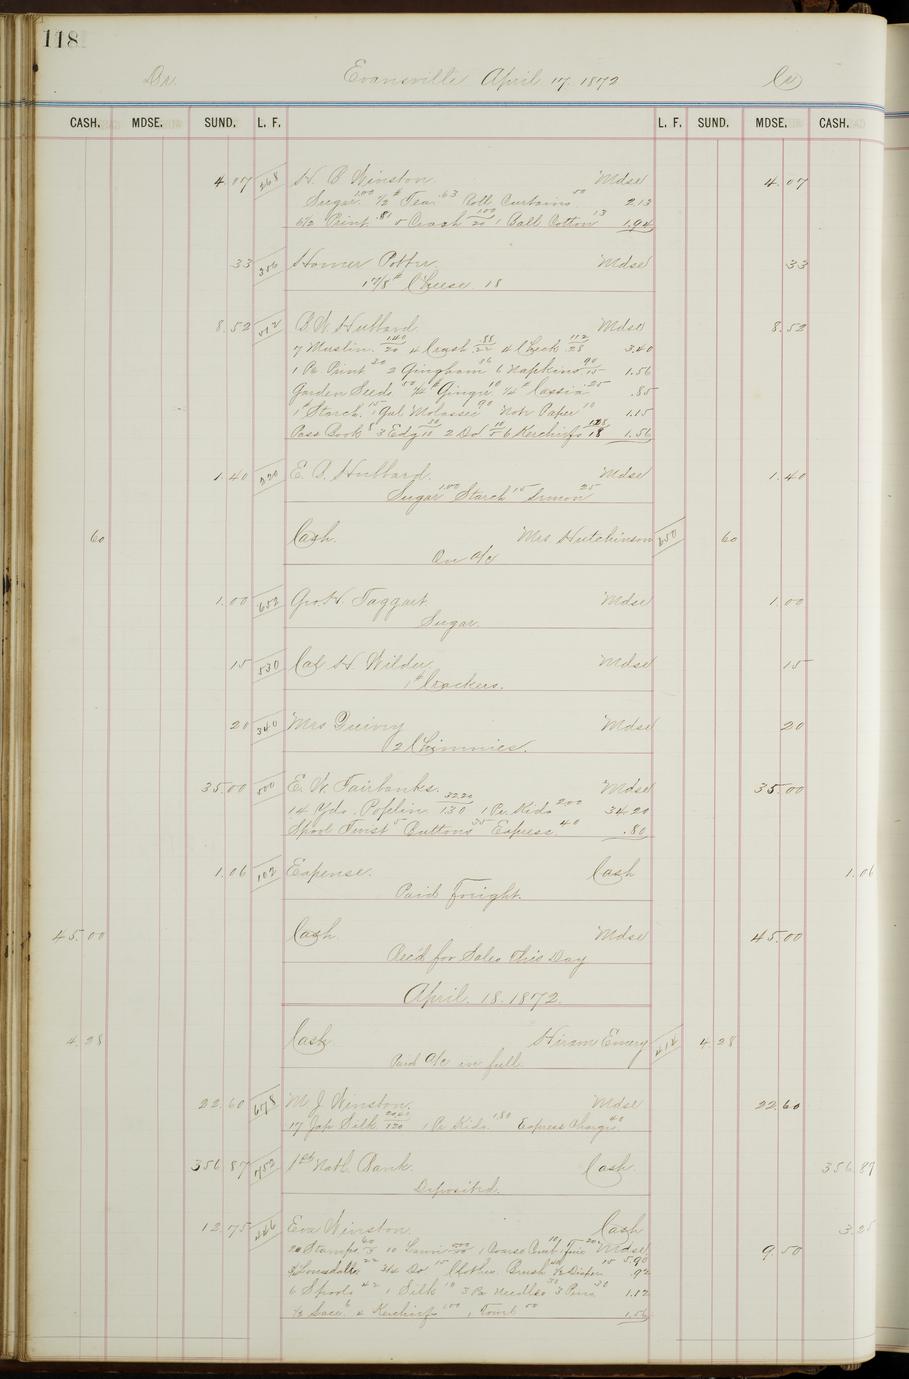 118
Dr. Evansville April 17. 1872 Cr.
CASH. MDSE. SUND. L. F. L. F. SUND. MDSE. CASH.
4.07 268 H. C. Winston. Mdse 4.07
Sugar 1.00 1/2 # Tea .63 Cott Curtains 50 2.13
6 1/2 Print .81 5 Crash 1.00/20 1 Ball Cotton 13 1.94
33 356 Homer Potter. Mdse 33
1 7/8 # Cheese 18
8.52 Hubbard. Mdse 8.52
7 Muslin 1.40/20 4 Crash 88/22 4 Check 1.12/28 3.40
1 Pc Print 30 2 Gingham 36 6 Napkins 90/15 1.56
Garden Seeds 50 1/4 # Ginger 10 1/4 # Cassia 25 .85
1 # Starch 15 1 Gal Molasses 90 Note Paper 10 1.15
Pass Book 8 3 Edg 30/10 2 Do 10/5 6 Kerchiefs 1.08/18 1.56
1.40 220 Hubbard. Mdse 1.40
Sugar 1.00 Starch 15 25
60 Cash. Mrs. Hutchinson 60
On a/c
1.00 652 Geo. H. Taggart. Mdse 1.00
Sugar.
15 530 Cal H Wilder. Mdse 15
1 # Crackers.
20 340 Mrs Mdse 20
2 Chimnies.
35.00 500 E. W. Fairbanks. Mdse 35.00
14 Yds. Poplin 32.20/130 1 Pr. Kids 2.00 34.20
Spool Twist 5 Buttons 35 Express 40 .80
1.06 102 Expense. Cash 1.06
Paid Freight.
45.00 Cash. Mdse 45.00
Rec'd for Sales this Day
April. 18. 1872.
4.28 Cash. Hiram Emery 414 4.28
Paid a/c in full.
22.60 678 M. J. Winston. Mdse 22.60
17 Jap Silk 20.40/120 1 Pr Kids 1.80 Express Charges 40
356 87 752 1st Natl. Bank. Cash. 356 87
Deposited.
12.75 Eva Winston. Cash 3.25
20 Stamps 60/3 10 1 Coarse Comb 10 1 Fine 20 Mdse 5.90 9.50
Lonsdale 22 3/4 Do 15 Clothes Brush 15 .92
6 Spools 42 1 Silk 10 3 Pr Needles 30 3 Pins 30 1.12
1/2 Lace 6 4 Kerchiefs 1.00 1 50 1.56